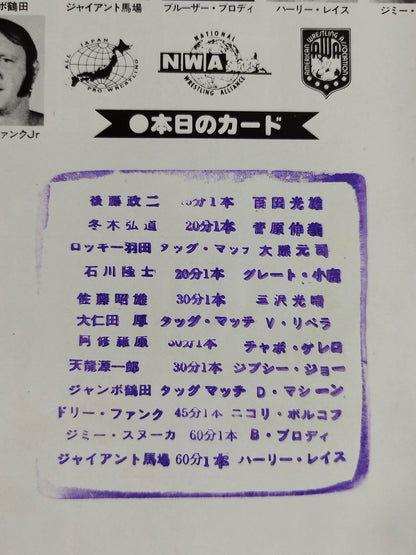 ボ鶴田 ジャイアント馬場 ブルーザー・ブロディ ハーリー・レイス ジミー・ス
ァンクJr
ALL JAPAN PRO-WRESTLING
NATIONAL NWA WRESTLING ALLIANCE
AMERICAN WRESTLING ASSOCIATION AWA
●本日のカード
後藤政二 分1本 百田光雄
冬木弘道 20分1本 菅原伸義
ロッキー羽田 タッグ・マッチ 大熊元司
石川隆士 20分1本 グレート・小鹿
佐藤昭雄 30分1本 三沢光晴
大仁田 厚 タッグ・マッチ V・リベラ
阿修羅原 30分1本 チャボ・ゲレロ
天龍源一郎 30分1本 ジプシー・ジョー
ジャンボ鶴田 タッグマッチ D・マシーン
ドリー・ファンク 45分1本 ニコリ・ボルコフ
ジミー・スヌーカ 60分1本 B・ブロディ
ジャイアント馬場 60分1本 ハーリー・レイス